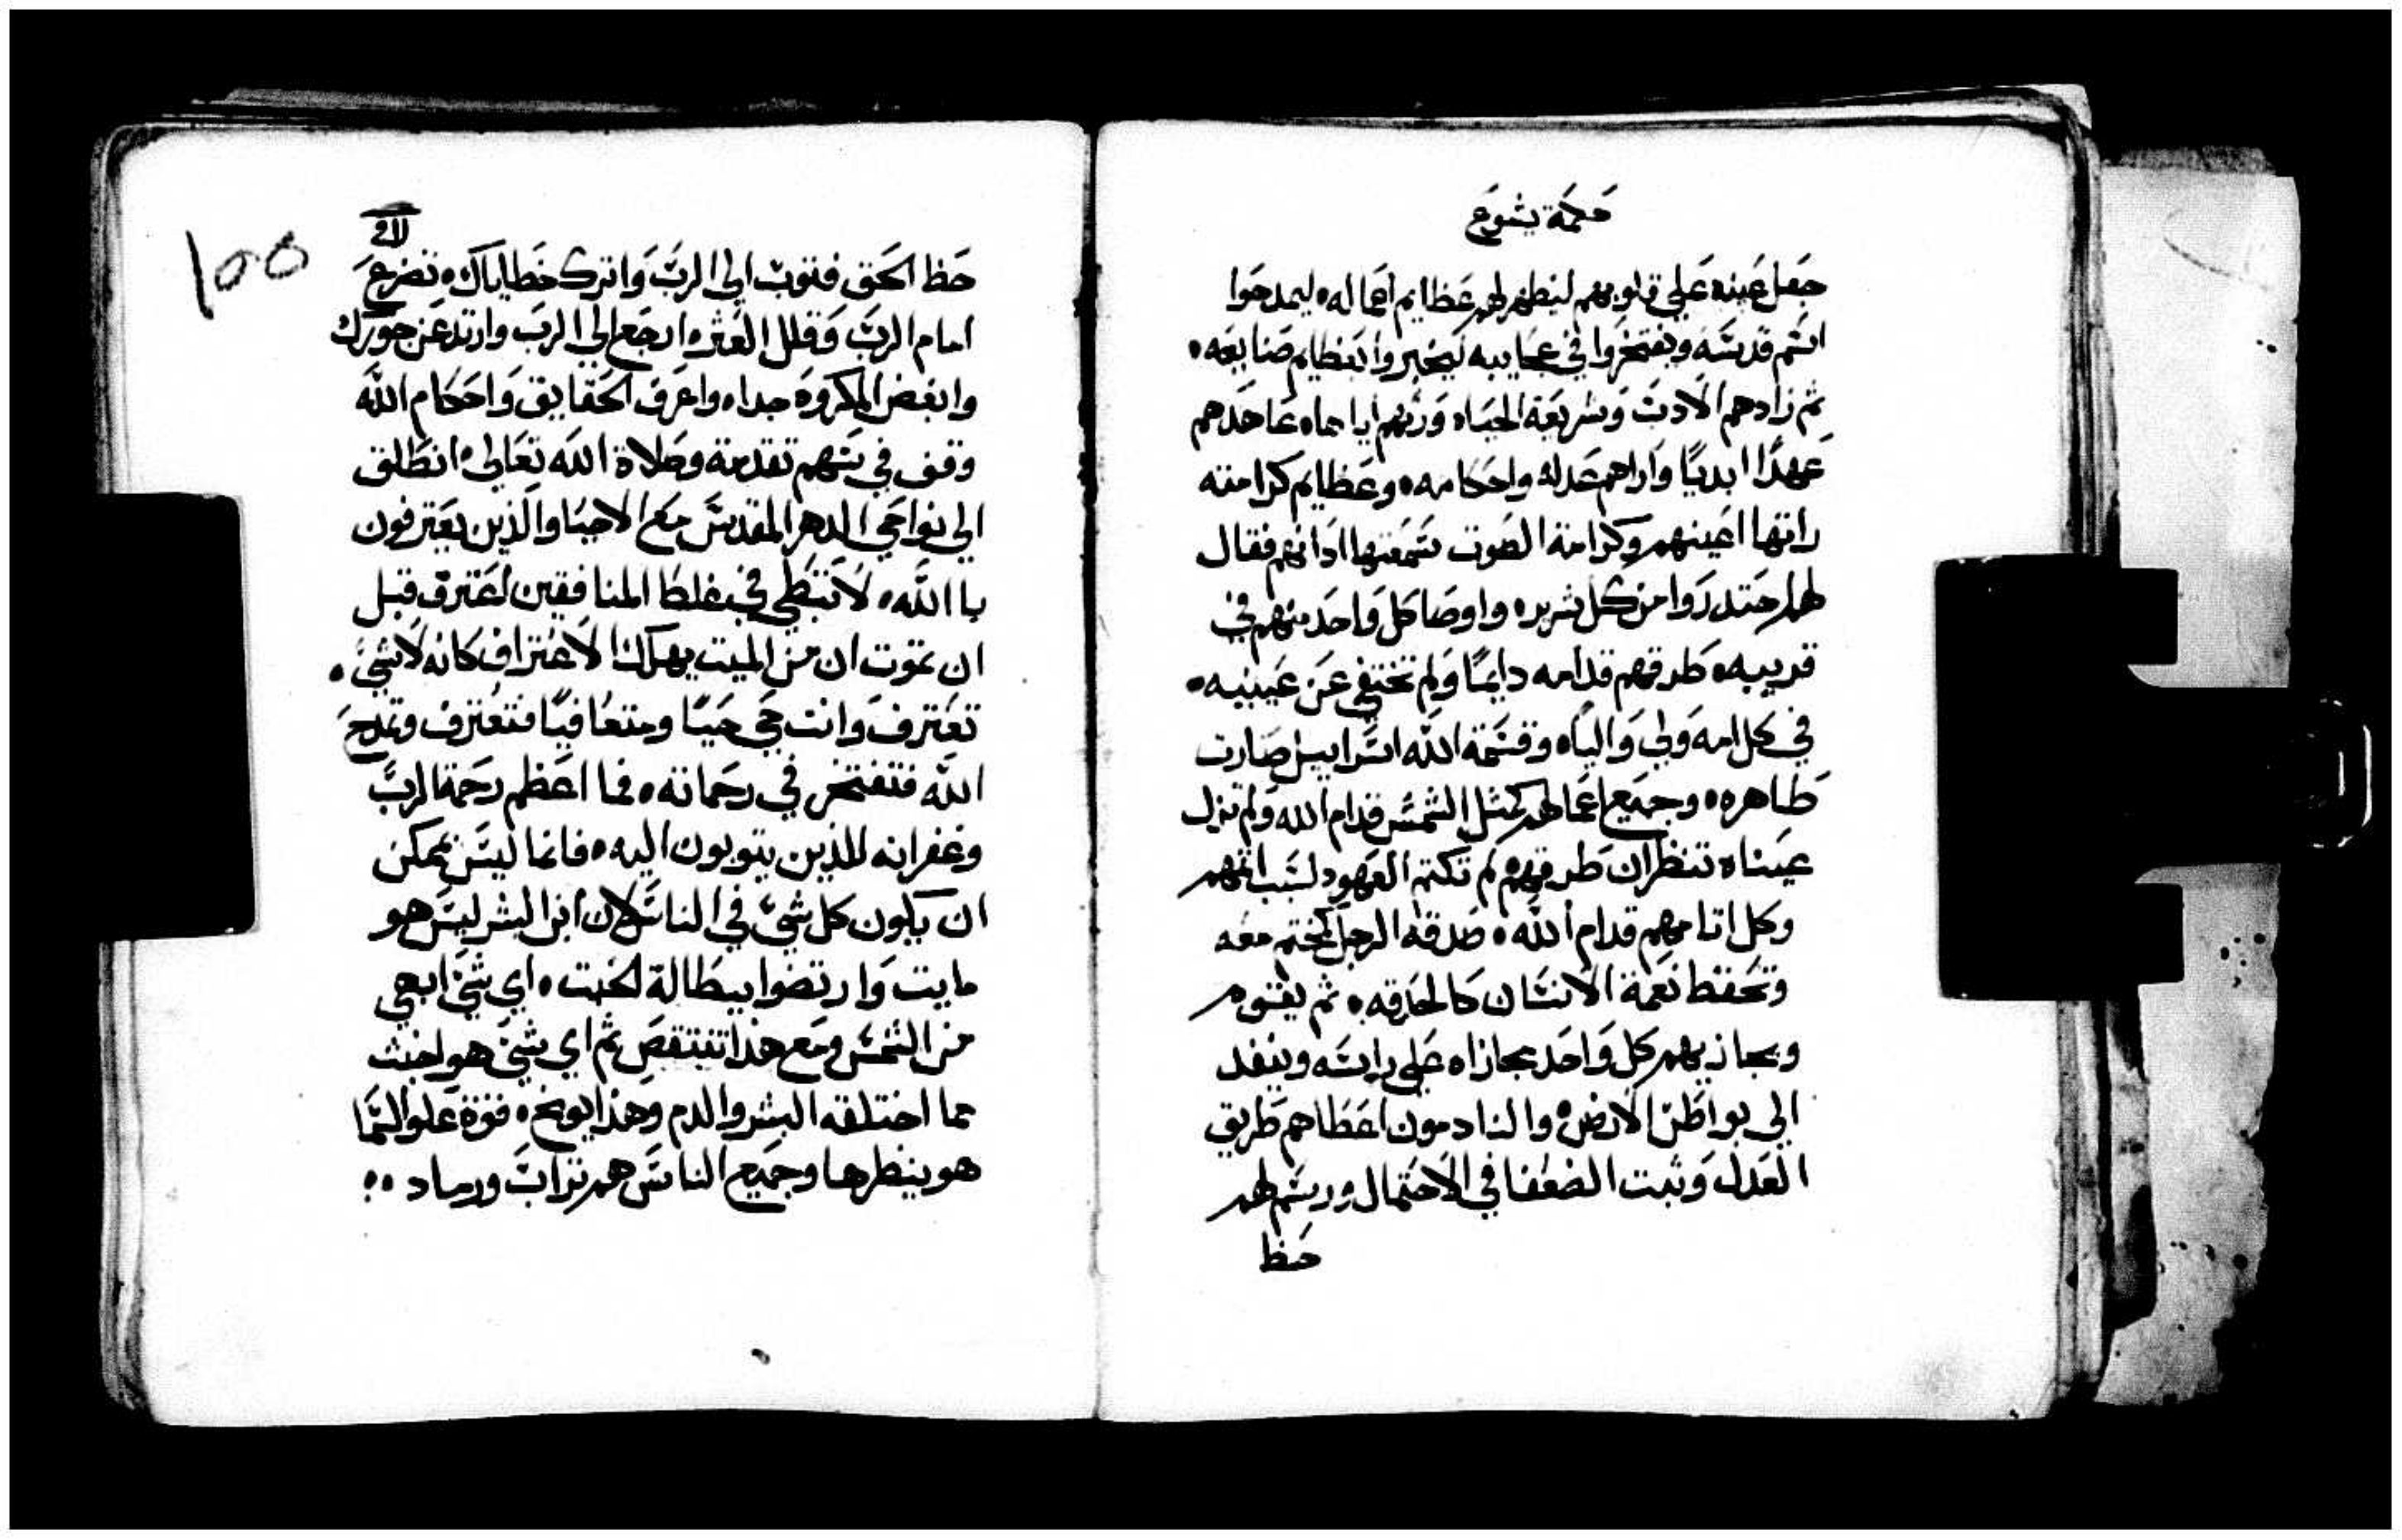 حكمة يشوع
جعل عينه على قلوبهم ليظهر لهم عظايم اعماله ليمدحوا
اسم قدسه ويفتخروا في عجايبه ليخبروا بعظايم صنايعه
ثم زادهم الادب وشريعة الحياه ورثهم اياها عاهدهم
عهدًا ابديًا واراهم عدله واحكامه وعظايم كرامته
راتها اعينهم وكرامة الصوت سمعتها اذانهم فقال
لهم احتدروا من كل شرير واوصا كل واحد منهم في
قريبه طرقهم قدامه دايمًا ولم تختفي عن عينيه
في كل امه ولي واليًا وقسمة الله اسراييل صارت
ظاهره وجميع اعمالهم كمثل الشمس قدام الله ولم تزل
عيناه تنظران طرقهم لم تكتم العهود لسبب اتمهم
وكل اتامهم قدام الله صدقة الرجل كختم معه
وتحفظ نعمة الانسان كالحدقه ثم يقوم
ويجازيهم كل واحد مجازاه على راسه وينفد
الى بواطن الارض والنادمون اعطاهم طريق
العدل وثبت الضعفا في الاحتمال ورسم لهم
حظ
١٥٥
حظ الحق فتوب الى الرب واترك خطاياك تضرع
امام الرب وقلل العثره ارجع الى الرب وارتد عن جورك
وابغض المكروه جدا واعرف الحقايق واحكام الله
وقف في سهم تقدمة وصلاة الله تعالى انطلق
الى نواحي الدهر المقدس مع الاحيا والذين يعترفون
با الله لا تبطي في غلط المنافقين اعترف قبل
ان تموت ان من الميت يهلك الاعتراف كانه لا شي
تعترف وانت حي حيًا ومتعافيًا فتعترف وتمدح
الله فتفتخر في رحماته فما اعظم رحمة الرب
وغفرانه للذين يتوبون اليه فانما ليس يمكن
ان يكون كل شي في الناس لان ابن البشر ليس هو
مايت وارتضوا ببطالة الخبت اي شي ابهي
من الشمس ومع هذا تنتقص ثم اي شي هو اخبث
مما اختلقه البشر والدم وهذا يوبخ قوة علو السما
هو ينظرها وجميع الناس هم تراب ورماد